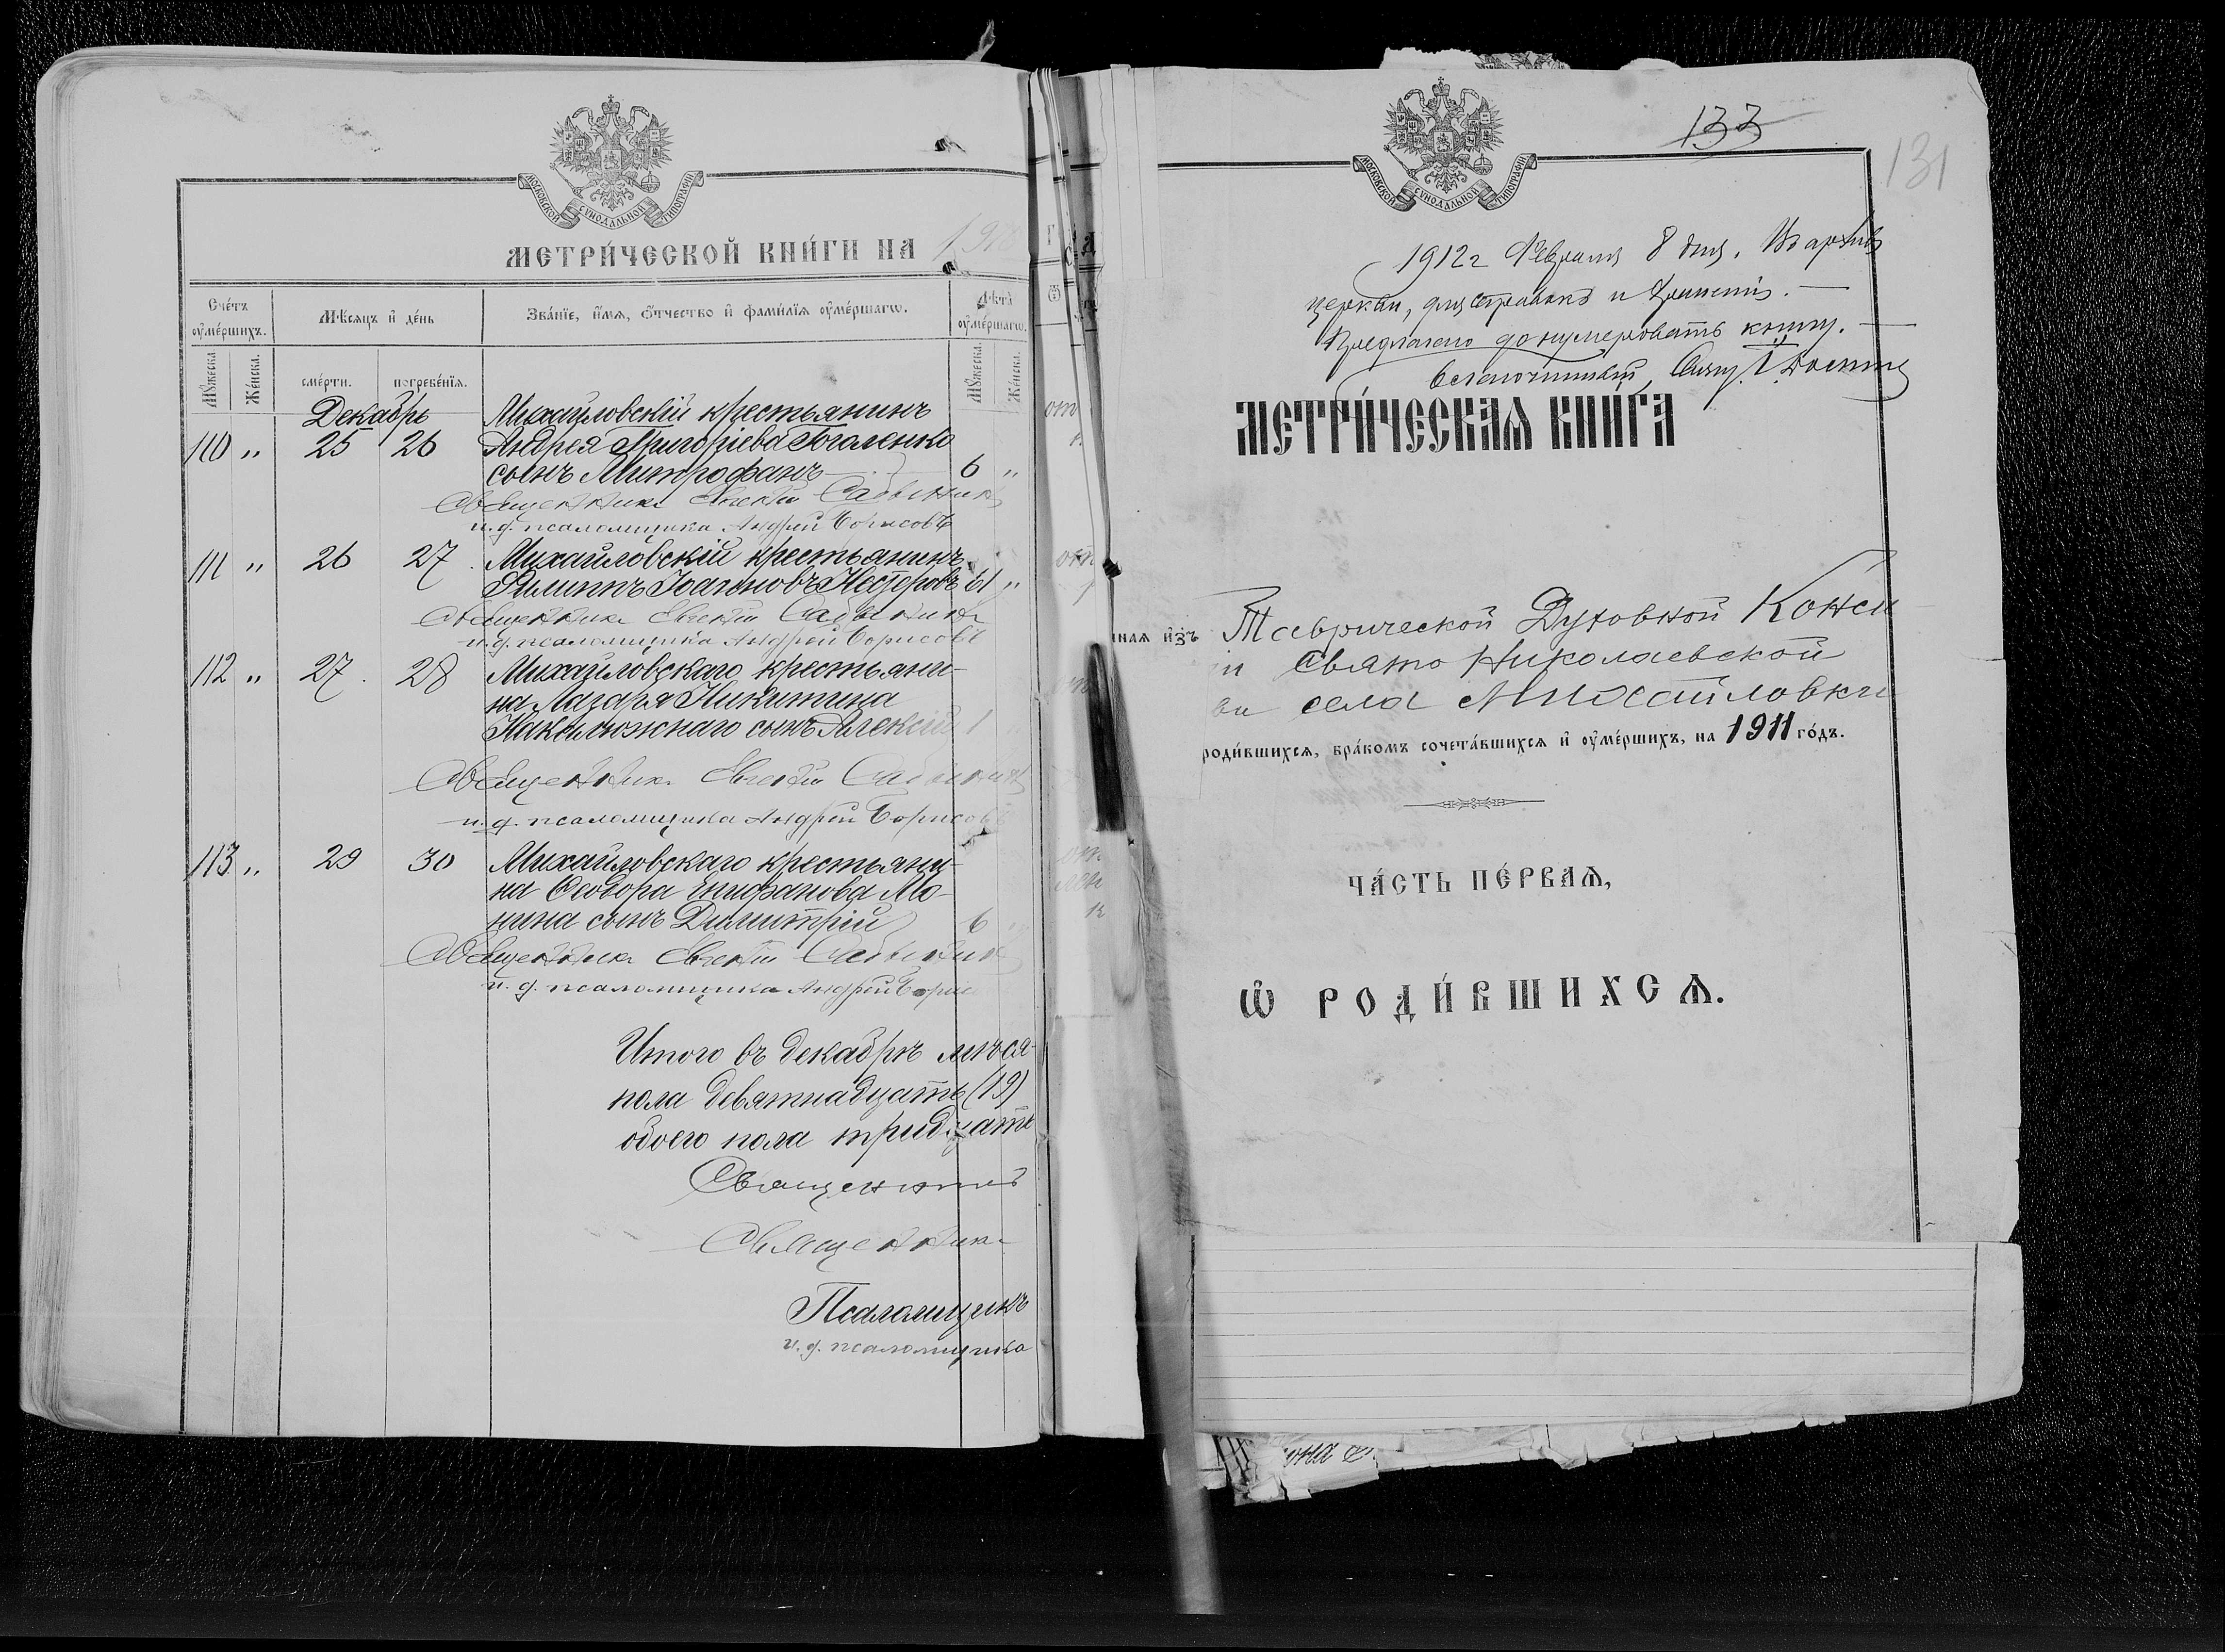 МОСКОВСКОЙ СУНОДАЛЬНОЙ ТИПОГРАФІИ
МЕТРИ́ЧЕСКОЙ КНИ́ГИ НА 191
Сче́тъ ᲂу҆ме́ршихъ.
Мѣ́сяцъ и҆ де́нь
Зва́нїе, и҆́мѧ, ѻ҆́тчество и҆ фами́лїѧ ᲂу҆ме́ршагѡ.
Лѣ́та ᲂу҆ме́ршагѡ.
Мꙋ́жеска.
Же́нска.
сме́рти.
погребе́нїѧ.
Мꙋ́жеска.
Же́нска.
Декабрь
Михайловскій крестьянинъ
110 " 25 26 Андрея Григоріева Гоголенко
сынъ Митрофанъ 6 "
Священникъ Евгеній
и. д. псаломщика Андрей Борисовъ
111 " 26 27 Михайловскій крестьянинъ
Филиппъ Іоанновъ Нестеровъ 61 "
Священникъ Евгеній
и. д. псаломщика Андрей Борисовъ
112 " 27 28 Михайловскаго крестьяни-
на Лазаря Никитина
сынъ Алексій 1
Священникъ Евгеній
и. д. псаломщика Андрей Борисовъ
113 " 29 30 Михайловскаго крестьяни-
на Ѳеодора Епифанова Мо-
нина сынъ Димитрій 6
Священникъ Евгеній
и. д. псаломщика Андрей Борис
Итого въ декабрѣ мѣся-
пола девятнадцать (19)
обоего пола тридцать
Священникъ
Священникъ
Псаломщикъ
и. д. псаломщика
133
131
МОСКОВСКОЙ СУНОДАЛЬНОЙ ТИПОГРАФІИ
1912 г Февраля 8 дня. Въ архивъ
церкви, для справокъ и храненія.
Предлагаю донумеровать книгу.
Благочинный, Свящ.
МЕТРИ́ЧЕСКАѦ КНИ́ГА
ная и҆зъ Таврической Духовной Конси
и Свято Николаевской
ви села Михайловки
роди́вшихсѧ, бра́комъ сочета́вшихсѧ и҆ ᲂу҆ме́ршихъ, на 1911 го́дъ.
ЧА́СТЬ ПЕ́РВАѦ,
Ѽ РОДИ́ВШИХСѦ.